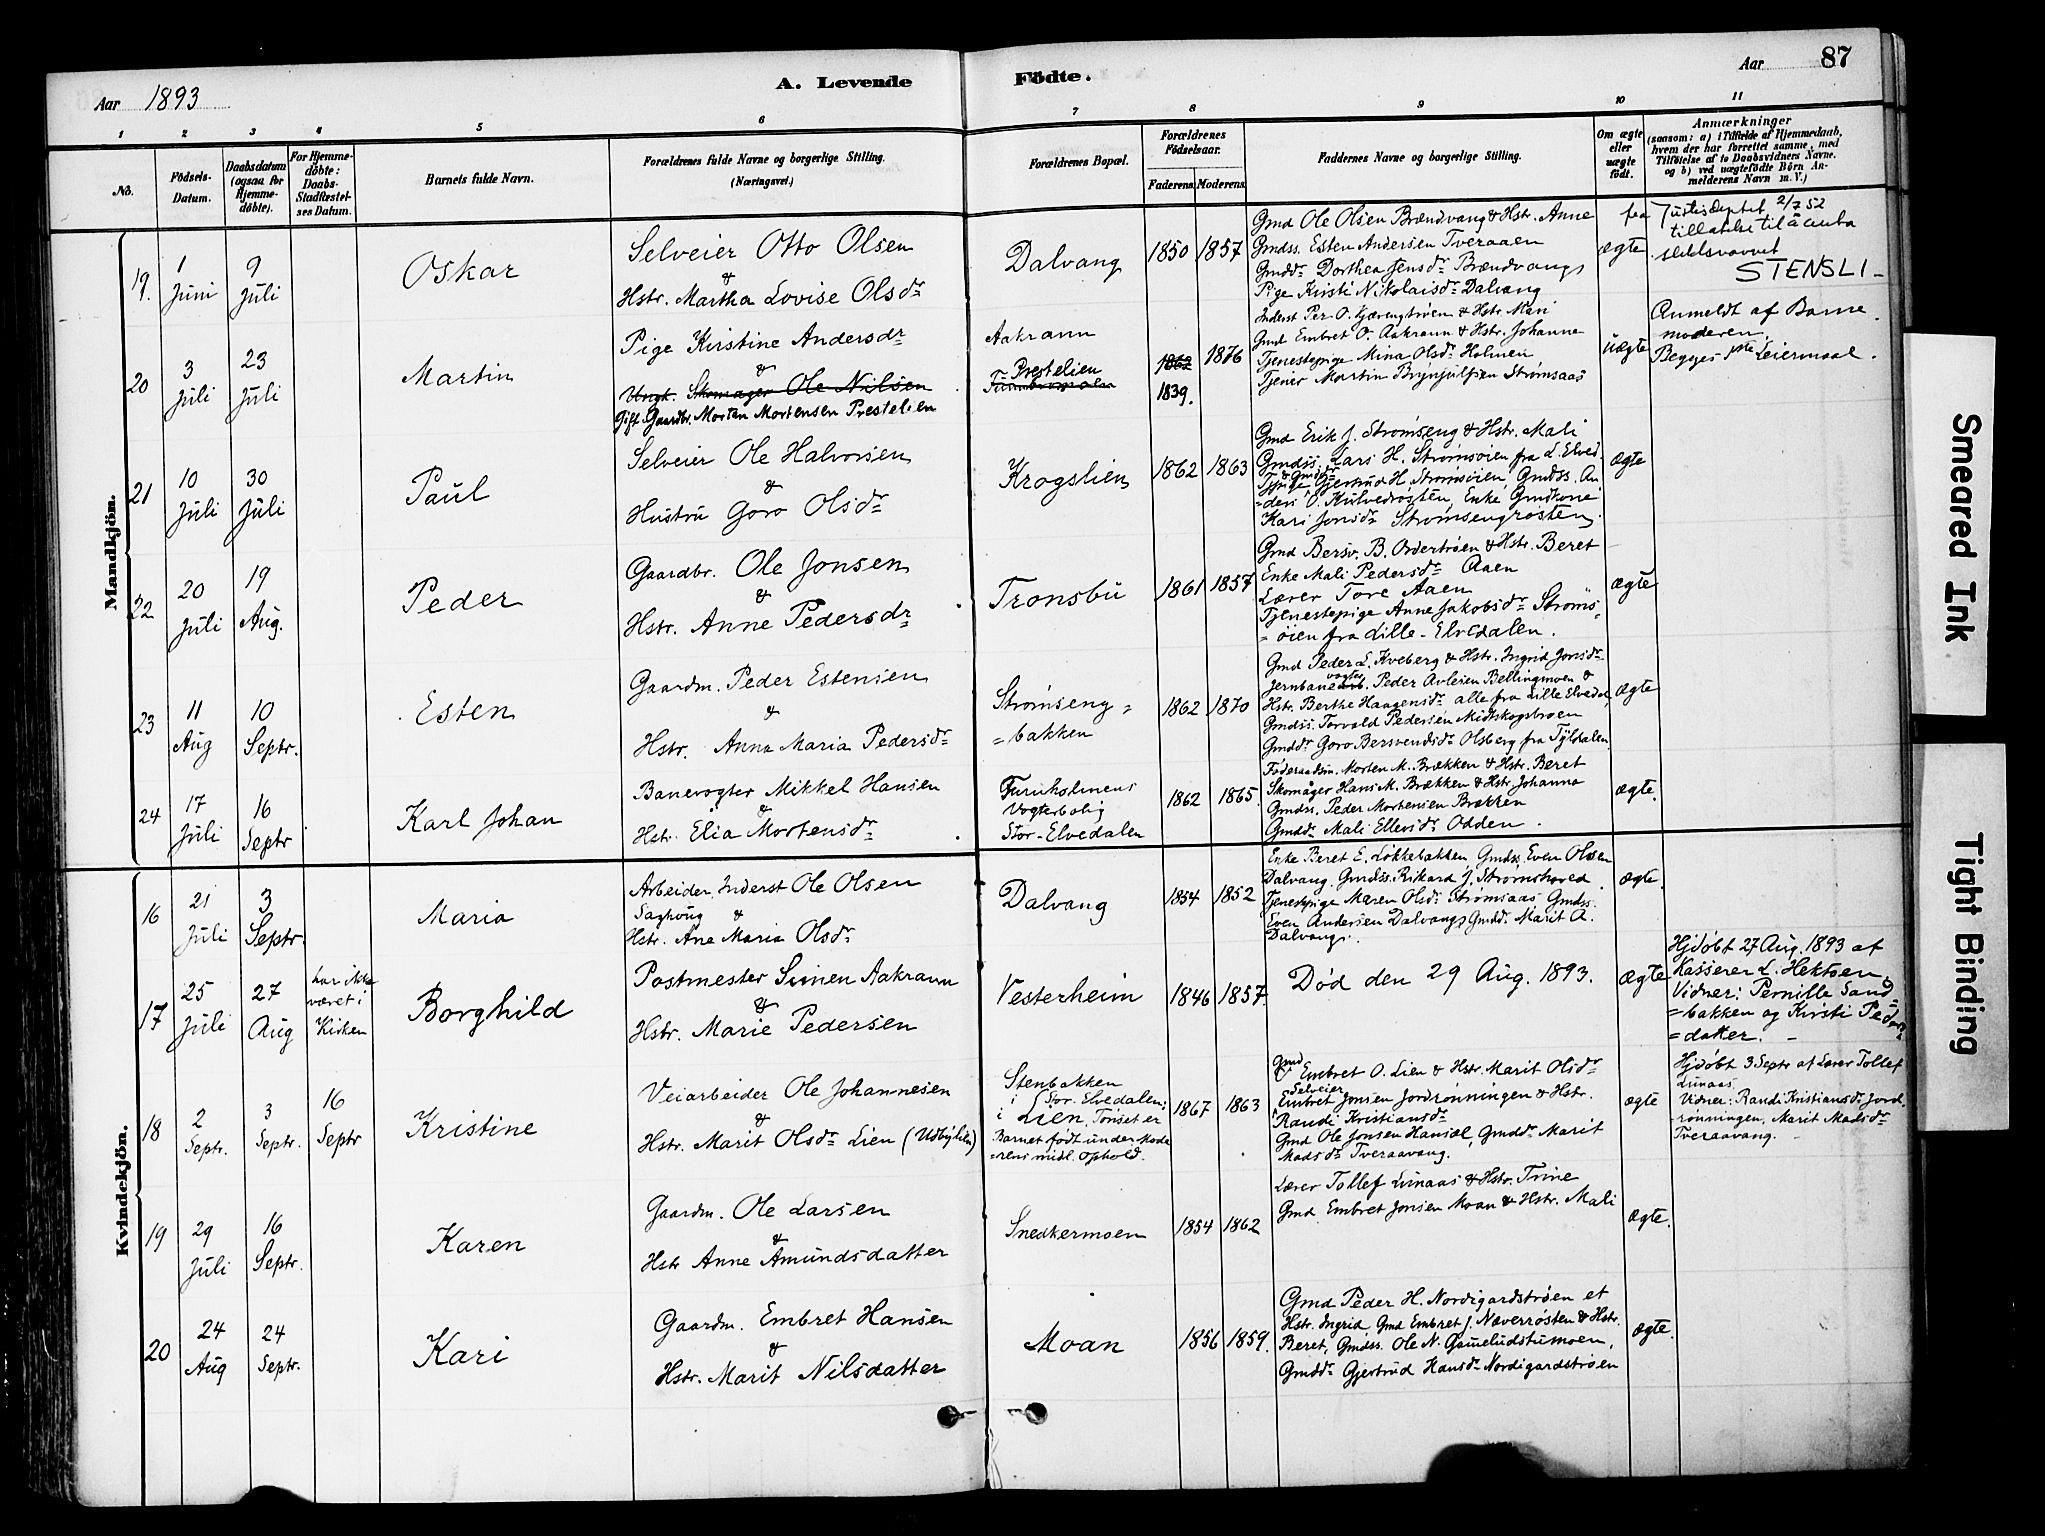 A. Levende Födte.
Aar 1893
Aar 87
1 2 3 4 5 6 7 8 9 10 11
No.
Födsels-Datum.
Daabsdatum (ogsaa for Hjemme-döbte).
For Hjemme-döbte: Daabs-Stadfæstel-ses Datum.
Barnets fulde Navn.
Forældrenes fulde Navne og borgerlige Stilling. (Næringsvei.)
Forældrenes Bopæl.
Forældrenes Fødselsaar.
Faderens Moderens
Faddernes Navne og borgerlige Stilling.
Om ægte eller uægte født.
Anmærkninger
(saasom: a) i Tilfælde af Hjemmedaab, hvem der har forrettet samme, med Tilföielse af to Daabsvidners Navne, og b) ved uægtefödte Börn An-melderens Navn m. V.)
Mandkjön.
19.
1 Juni
9 Juli
Oskar
Selveier Otto Olsen
&
Hstr. Martha Lovise Olsdr
Dalvang
1850 1857
Gmd Ole Olsen Brændvang & Hstr. Anne
Gmdss. Esten Andersen Tveraaen
Gmddr Dorthea Jensdr Brændvang
Pige Kirsti Nikolaisdr Dalvang
ægte
fra Justisdeptet 2/7 52
tillatelse til å anta
slektsnavnet
STENSLI-
20
3 Juli
23 Juli
Martin
Pige Kirstine Andersdr
&
Ungk. Skomager Ole Nilsen
Gift Gaardbr. Morten Mortensen Prestelien
Aakrann
Prestelien
1862 1876
1839.
Inderst Per O. Gjærengtrøen & Hstr Mari
Gmd Embret O. Aakrann & Hstr. Johanne
Tjenestepige Mina Olsdr Holmen
Tjener Martin Brynjulfsen Strømsaas
uægte
Anmeldt af Barne-
moderen.
Begges 1ste Leiermaal.
21
10 Juli
30 Juli
Paul
Selveier Ole Halvorsen
&
Hustru Goro Olsdr
Krogslien
1862 1863
Gmd Erik J. Strømseng & Hstr. Mali
Gmdss. Lars H. Strømsøien fra L. Elved.
Gjertrud H. Strømsøien, Gmdss. An-
=ders O. Kulvedrøsten, Enke Gmdkone
Kari Jonsdr Strømsengrøsten.
ægte
22
20 Juli
19 Aug.
Peder
Gaardbr. Ole Jonsen
&
Hstr. Anne Pedersdr
Tronsbu
1861 1857
Gmd Bersv. B. Ordertrøen & Hstr. Beret
Enke Mali Pedersdr Aaen
Lærer Tore Aaen
Tjenestepige Anne Jakobsdr Strøms=
=øien fra Lille-Elvedalen.
ægte
23
11 Aug
10 Septr.
Esten
Gaardm. Peder Estensen
&
Hstr. Anna Maria Pedersdr
Strømseng=
=bakken
1862 1870
Gmd Peder L. Kveberg & Hstr. Ingrid Jonsdr
Jernbanevogter Peder Avlesen Bellingmoen &
Hstr. Berthe Haagensdr alle fra Lille Elvedal,
Gmdss. Torvald Pedersen Midtskogstrøen
Gmddr Goro Bersvendsdr Olsberg fra Tyldalen
ægte
24
17 Juli
16 Septr
Karl Johan
Banevogter Mikkel Hansen
&
Hstr. Elia Mortensdr
Furuholmens
Vogterbolig
Stor-Elvedalen
1862 1865.
Føderaadsm. Morten M. Brækken & Hstr. Beret
Skomager Hans M. Brækken & Hstr Johanna
Gmdss. Peder Mortensen Brækken
Gmddr Mali Ellevsdr Odden.
ægte.
Kvindekjön.
16
21 Juli
3 Septr.
Maria
Arbeider, Inderst Ole Olsen
Saghoug &
Hstr. Ane Maria Olsdr
Dalvang
1854 1852
Enke Beret E. Løkkebakken, Gmdss. Even Olsen
Dalvang. Gmdss. Rikard J. Strømshoved.
Tjenestepige Maren Olsdr Strømsaas Gmdss.
Even Andersen Dalvang, Gmddr Marit A.
Dalvang.
ægte.
17
25 Juli
27 Aug
har ikke været i Kirken
Borghild
Postmester Simen Aakrann
&
Hstr. Marie Pedersen
Vesterheim
1846 1857.
Død den 29 Aug. 1893.
ægte
Hjdøbt 27 Aug. 1893 af
Kasserer L. Hektoen
Vidner: Pernille Sand=
=bakken og Kirsti Peders=
=datter. -
18
2 Septr.
3 Septr.
16 Septr
Kristine
Veiarbeider Ole Johannesen
&
Hstr. Marit Olsdr Lien (Udbylien)
Stenbakken
i Stor. Elvedalen;
i Lien, Tønset er
Barnet født under Mode-
=rens midl. Ophold.
1867 1863
Gmd Embret O. Lien & Hstr. Marit Olsdr
Selveier
Embret Jonsen Jordrønningen & Hstr.
Randi Kristiansdr
Gmd Ole Jonsen Hansæl, Gmddr Marit
Madsdr Tveraavang.
ægte
Hjdøbt 3 Septr af Lærer Tollef
Lunaas.
Vidner: Randi Kristiansdr Jord-
rønningen, Marit Madsdr
Tveraavang. -
19
29 Juli
16 Septr.
Karen
Gaardm. Ole Larsen
&
Hstr Anne Amundsdatter
Snedkermoen
1854 1862
Lærer Tollef Lunaas & Hstr. Trine
Gmd. Embret Jonsen Moan & Hstr. Mali
ægte.
20
24 Aug
24 Septr.
Kari
Gaardm. Embret Hansen
&
Hstr. Marit Nilsdatter
Moan
1856 1859.
Gmd Peder H. Nordigardstrøen et
Hstr. Ingrid Gmd Embret J. Næverrøsten & Hstr.
Beret, Gmdss. Ole N. Gameludstumoen,
Gmddr Gjertrud Hansdr Nordigardstrøen
ægte.
Smeared Ink
Tight Binding